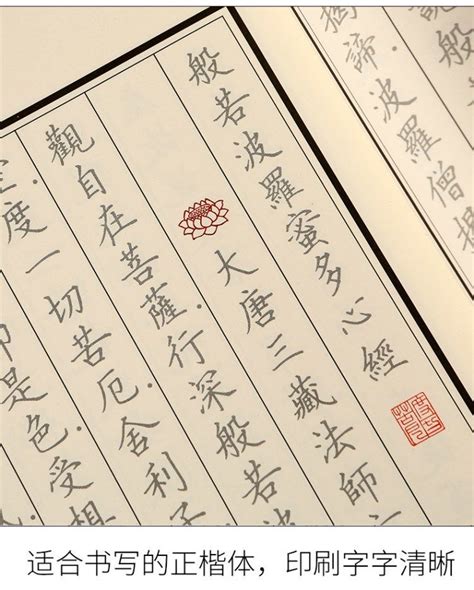 揭諦波羅僧揭
般若波羅蜜多心經
大唐三藏法師
觀自在菩薩行深般若
空.度一切苦厄.舍利子
即是色.受想
适合书写的正楷体，印刷字字清晰